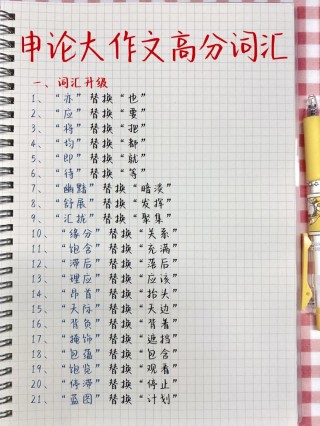 申论大作文高分词汇
一、词汇升级
1、“亦”替换“也”
2、“应”替换“要”
3、“将”替换“把”
4、“均”替换“都”
5、“即”替换“就”
6、“待”替换“等”
7、“幽黯”替换“暗淡”
8、“舒展”替换“发挥”
9、“汇拢”替换“聚集”
10、“缘分”替换“关系”
11、“饱含”替换“充满”
12、“滞后”替换“落后”
13、“理应”替换“应该”
14、“昂首”替换“抬头”
15、“天际”替换“天边”
16、“背负”替换“背着”
17、“掩饰”替换“遮挡”
18、“包蕴”替换“包含”
19、“饱览”替换“观看”
20、“停滞”替换“停止”
21、“蓝图”替换“计划”